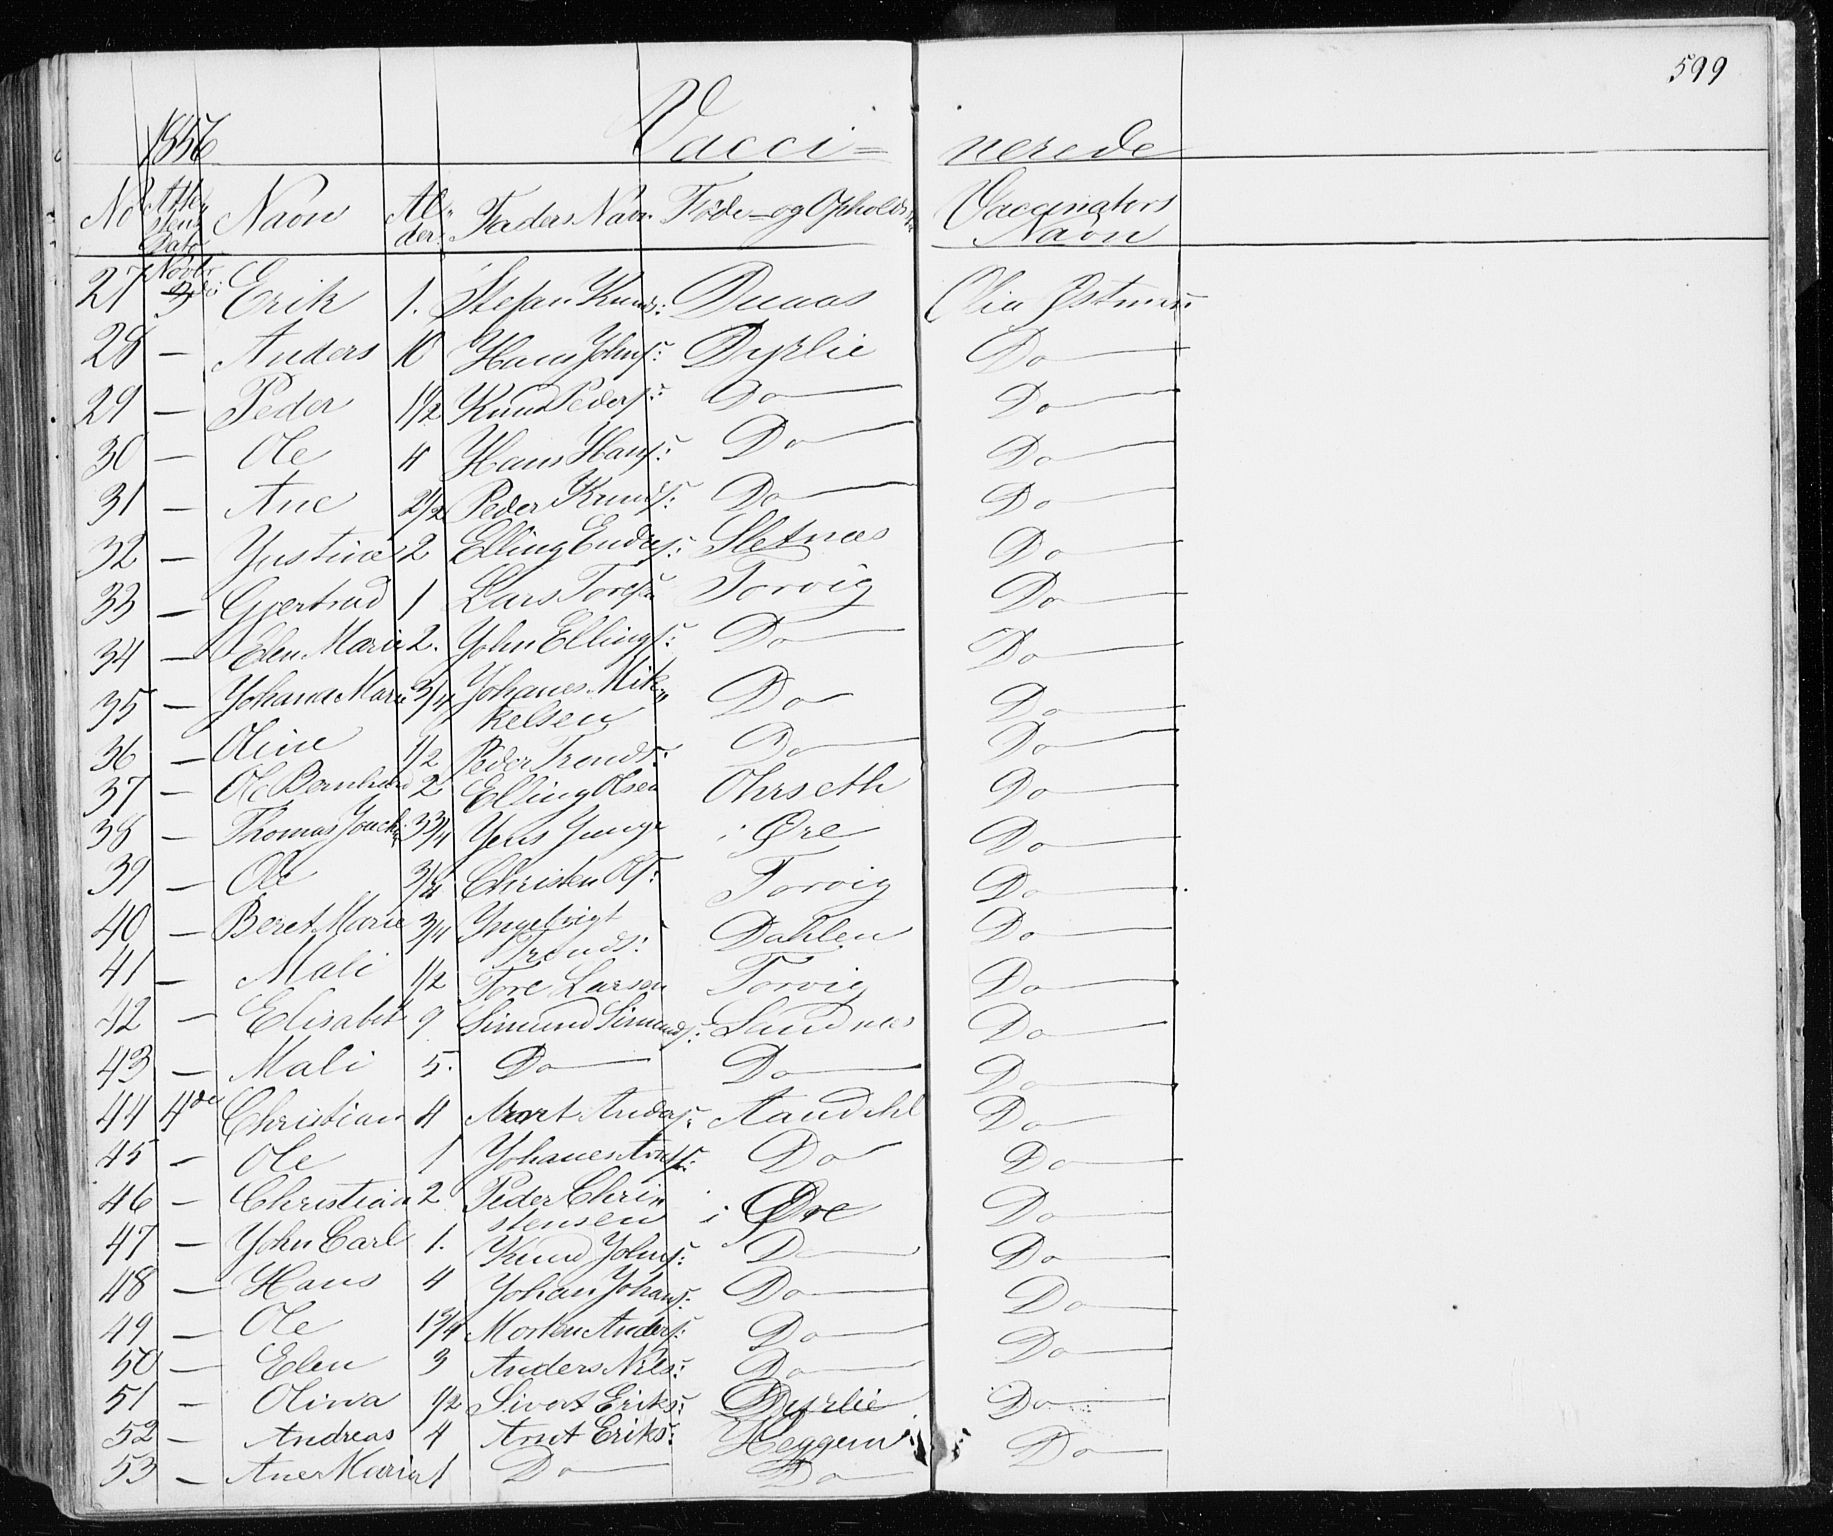 599
1856 Vacci= nerede
No Attestens Dato Navn Alder Faders Navn Føde- og Opholds Vaccinators Navn
27 Novbr 3die Erik 1. Stefan Knuds: Duaas Olia Østmun
28 — Anders 10 Hans Johns: Dyrlie Do
29 — Peder 1½ Knud Peders: Do Do
30 — Ole 4 Hans Hans: Do Do
31 — Ane 2½ Peder Knuds: Do Do
32 — Justine 2 Elling Enders: Sletnæs Do
33 — Gjertrud 1 Lars Tores: Torvig Do
34 — Elen Marie 2. John Ellings: Do Do
35 — Johanna Marie 3/4 Johanes Mik=
kelsen Do Do
36 — Oline 1/2 Peder Tronds: Do Do
37 — Ole Bernhard 2 Elling Olsen Ohrseth Do
38 — Thomas 3 3/4 Jens Junge i Øre Do
39 — Ole 3/4 Christen Ols: Torvig Do
40 — Beret Marie 3/4 Ingebrigt
Tronds: Dahlen Do
41 — Mali 1/2 Tore Larsen Torvig Do
42 — Elisabet 9 Simund Simunds: Sandnæs Do
43 — Mali 5. Do Do Do
44 4de Christian 4 Anders: Do
45 — Ole 1 Johanes Arnts: Do Do
46 — Christian 2 Peder Chri
stensen i Øre Do
47 — John Carl 1. Knud Johns: Do Do
48 — Hans 4 Johan Johans: Do Do
49 — Ole Morten Anders: Do Do
50 — Elen 3 Anders Nils: Do Do
51 — Olina 1/2 Sivert Eriks: Dyrlie Do
52 — Andreas 4 Arnt Eriks: Heggem Do
53 — Ane Maria 1 Do Do